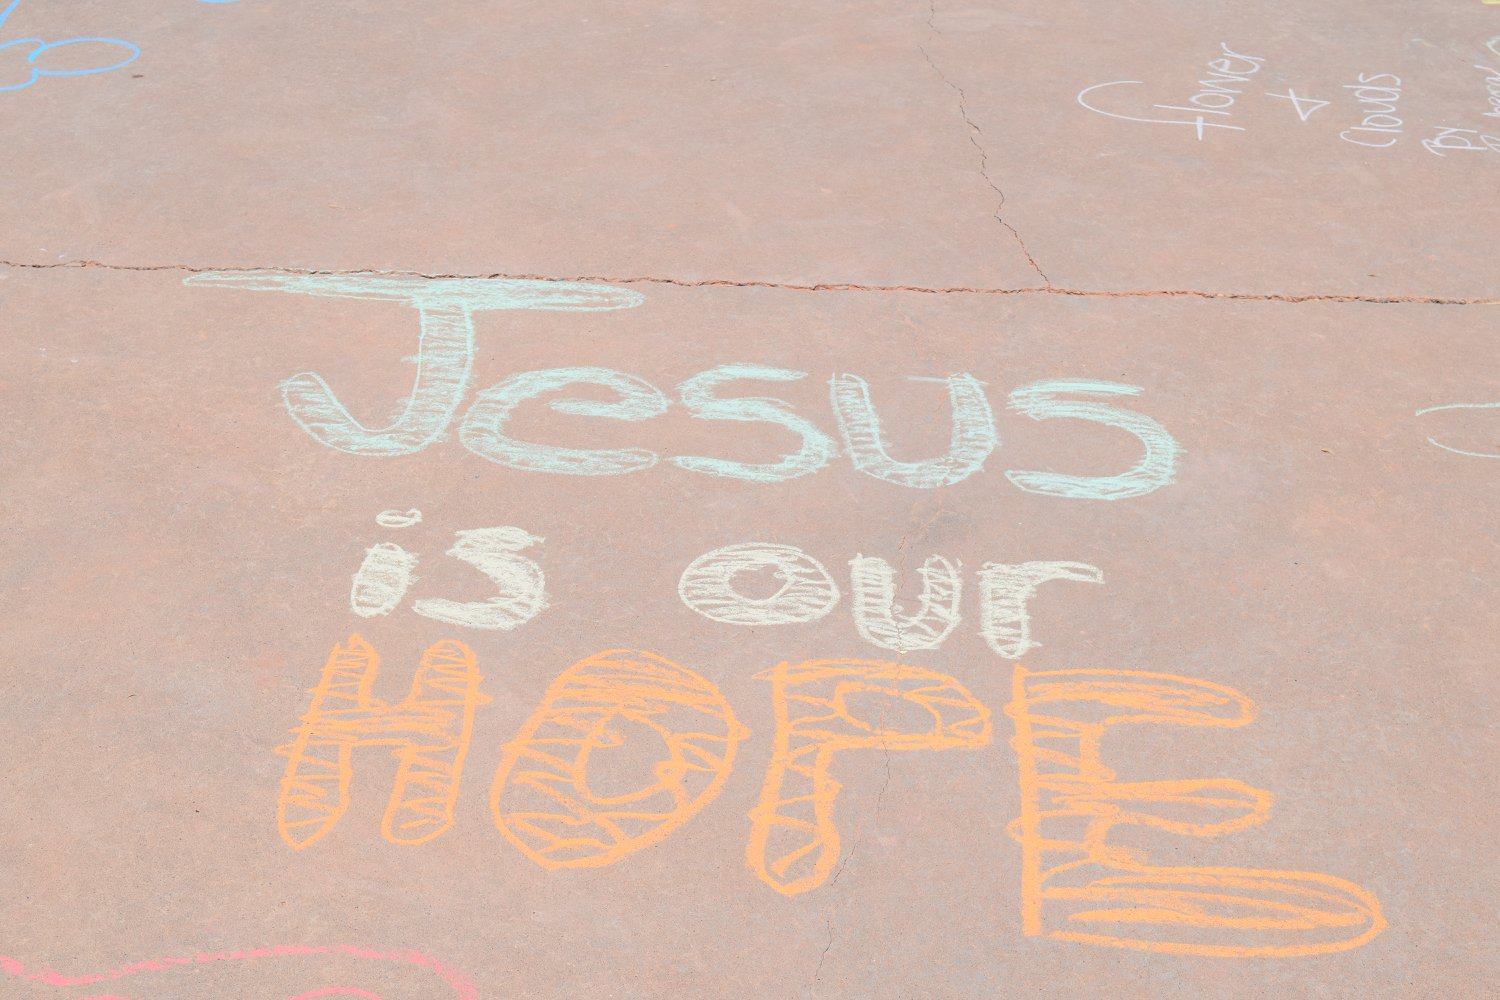 flower
&
Clouds
By
Jesus
is our
HOPE